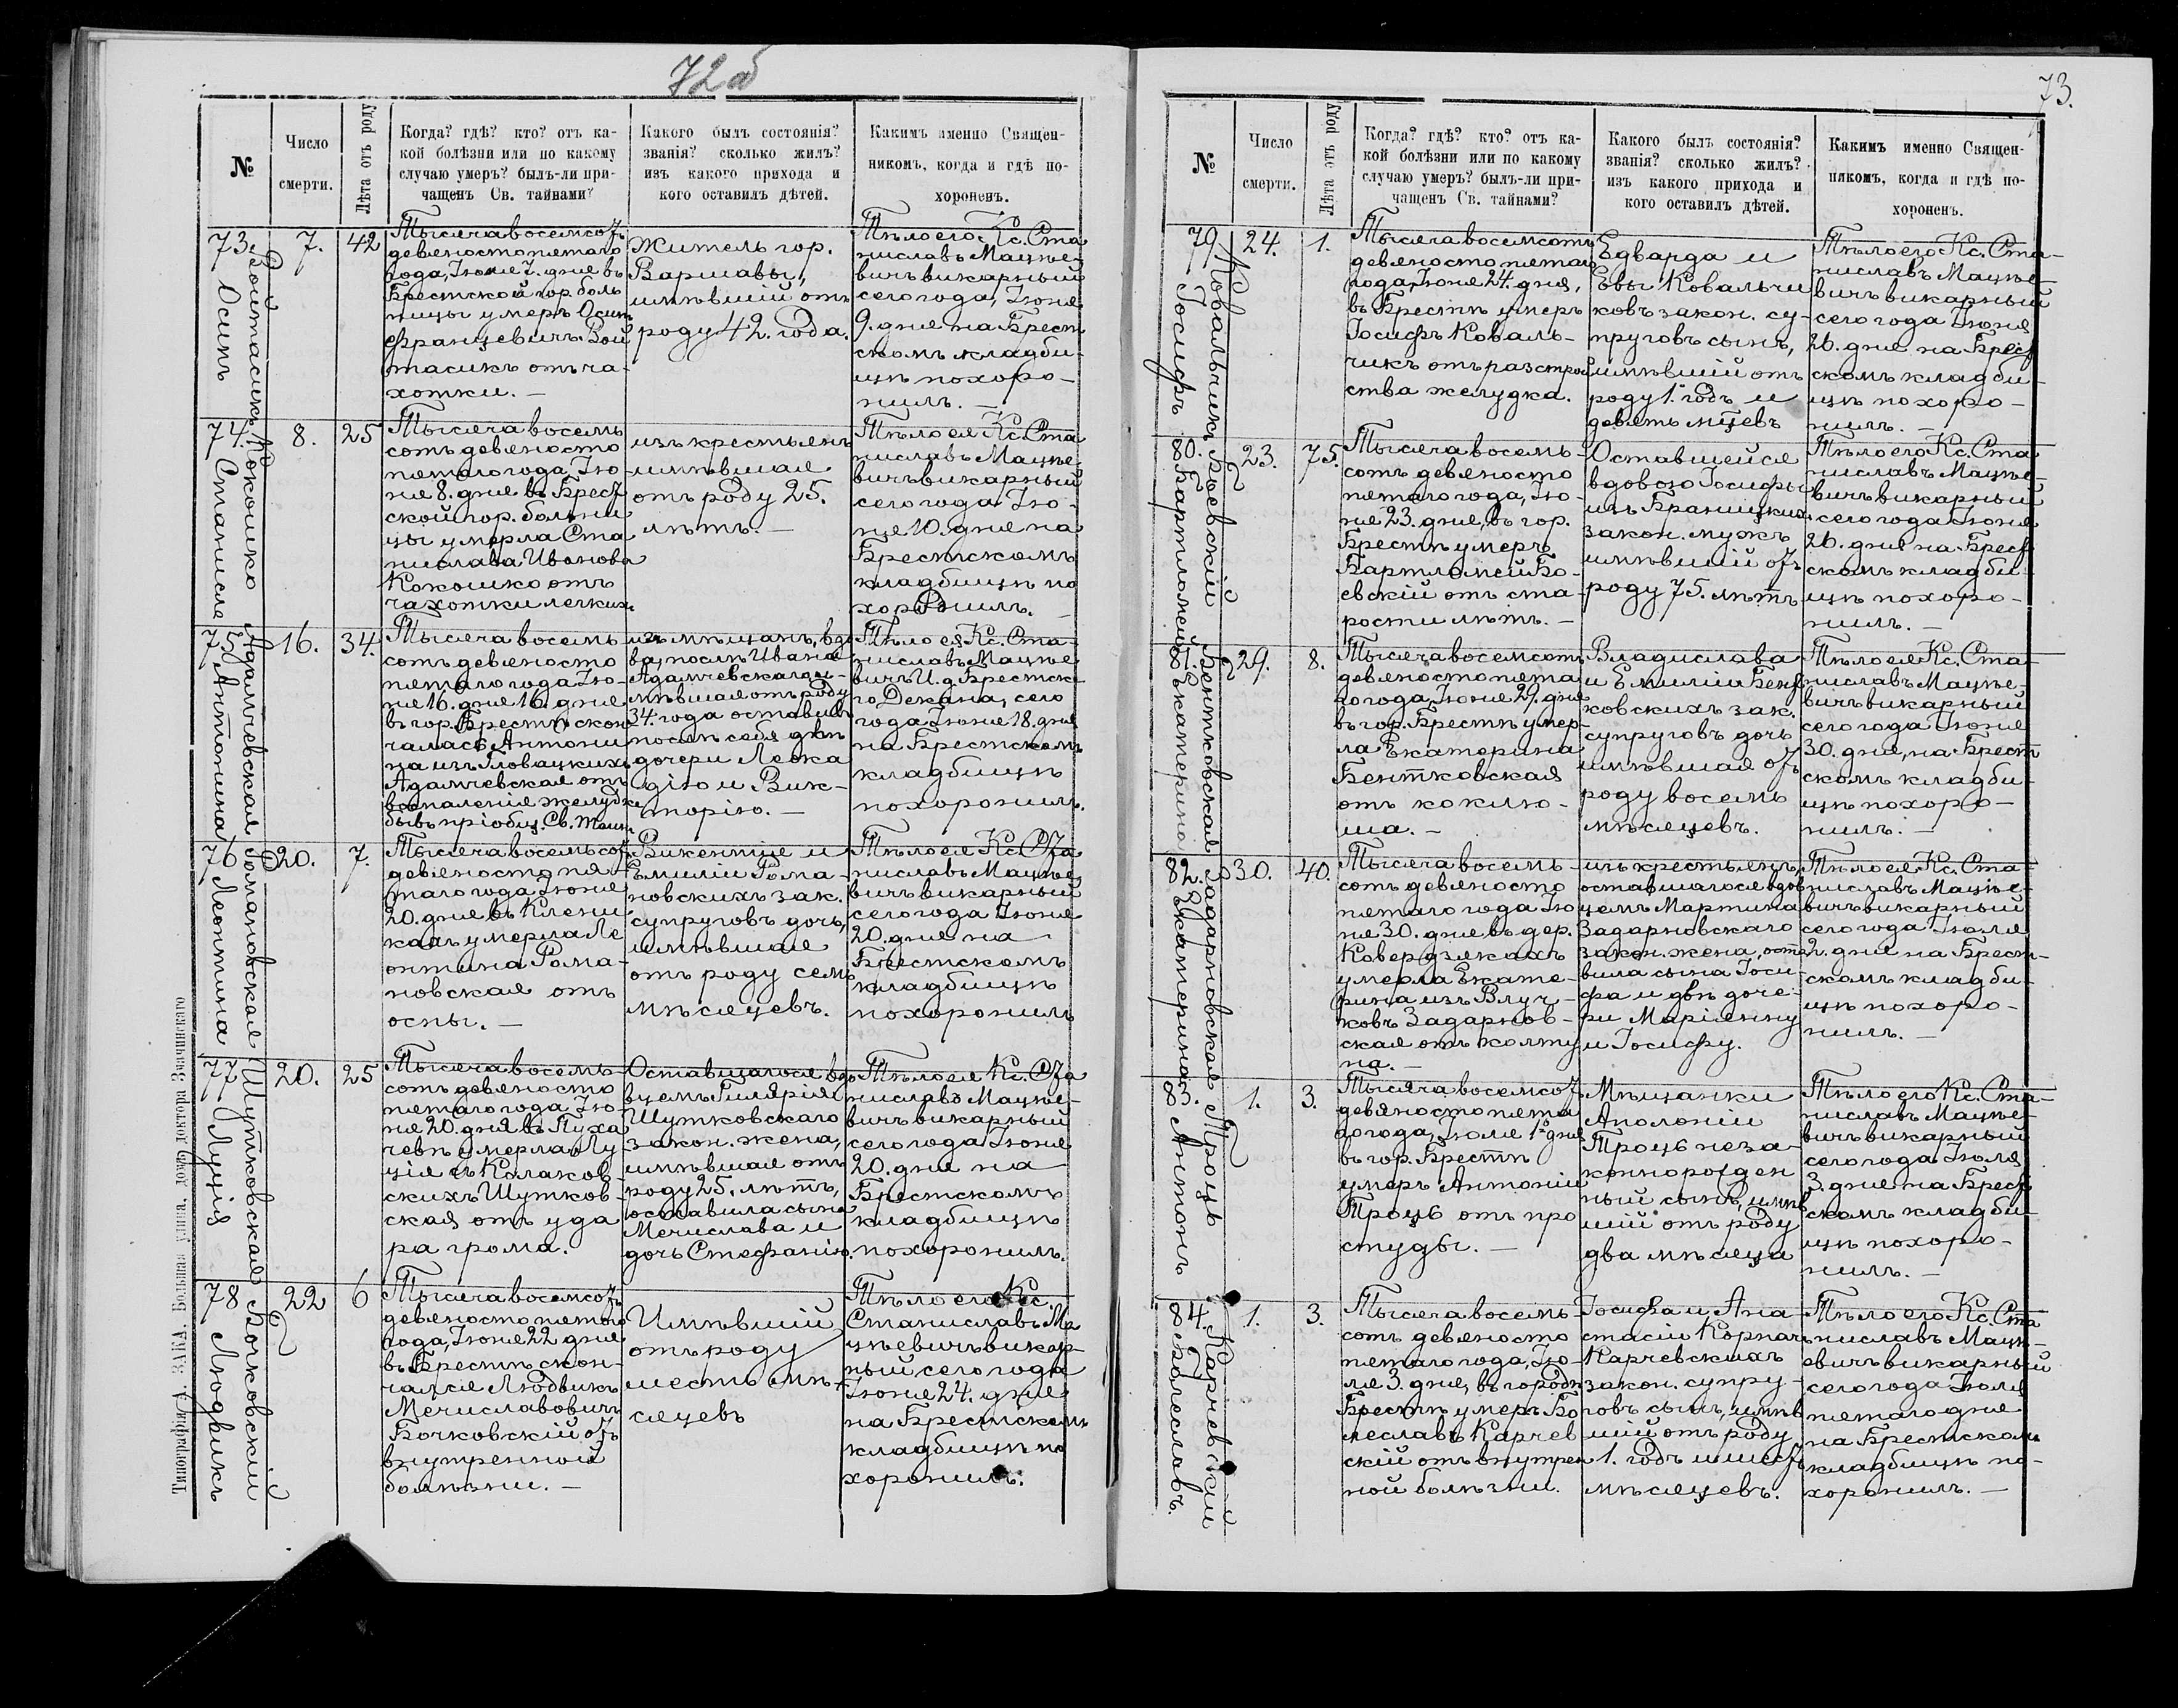 72 об
№
Число
смерти.
Лѣта отъ роду
Когда? гдѣ? кто? отъ ка-
кой болѣзни или по какому
случаю умеръ? былъ-ли при-
чащенъ Св. тайнами?
Какого былъ состоянія?
званія? сколько жилъ?
изъ какого прихода и
кого оставилъ дѣтей.
Какимъ именно Священ-
никомъ, когда и гдѣ по-
хороненъ.
73.
Войтасикъ
Осипъ
7.
42
Тысяча восемсотъ
девяносто пятаго
года, Іюня 7. дня въ
Брестской гор. боль
ницы умеръ Осипъ
Францевичъ Вой
тасикъ отъ ча-
хотки. —
Житель гор.
Варшавы,
имѣвшій отъ
роду 42. года.
Тѣло его Кс. Ста
ниславъ Мацке-
вичъ викарный
сего года, Іюня
9. дня на Брест
скомъ кладби-
щѣ похоро-
нилъ. —
74.
Кокошко
Станисла
8.
25
Тысяча восемь
сотъ девяносто
пятаго года, Ію
ня 8. дня въ Брест
ской гор. больни
цы умерла Ста
нислава Иванова
Кокошко отъ
чахотки легкихъ
изъ крестьянъ
имѣвшая
отъ роду 25.
лѣтъ. —
Тѣло ея Кс. Ста
ниславъ Мацке-
вичъ викарный
сего года Ію-
ня 10. дня на
Брестскомъ
кладбищѣ по
хоронилъ. —
75.
Адамчевская
Антонина
16.
34.
Тысяча восемь
сотъ девяносто
пятаго года Ію-
ня 16. дня 16. дня
въ гор. Брестѣ скон
чалась Антони
на изъ Гловацкихъ
Адамчевская отъ
воспаленія желудка
бывъ пріобщ. Св. Таин.
изъ мѣщанъ, вдо
ва послѣ Ивана
Адамчевскаго и-
мѣвшая отъ роду
34. года оставивъ
послѣ себя двѣ
дочери Леока
дію и Вик-
торію. —
Тѣло ея Кс. Ста
ниславъ Мацке
вичъ И. д. Брестска
го Декана, сего
года Іюня 18. дня
на Брестскомъ
кладбищѣ
похоронилъ.
76
Романовская
Леонтина
20.
7.
Тысяча восемьсотъ
девяносто пя-
таго года Іюня
20. дня въ Клени
кахъ умерла Ле
онтина Рома-
новская отъ
оспы. —
Викентія и
Емиліи Рома-
новскихъ зак.
супруговъ дочь,
имѣвшая
отъ роду семь
мѣсяцевъ.
Тѣло ея Кс. Ста
ниславъ Мацке-
вичъ викарный
сего года Іюня
20. дня на
Брестскомъ
кладбищѣ
похоронилъ
77
Шутковская
Луція
20.
25
Тысяча восемь
сотъ девяносто
пятаго года Ію-
ня 20. дня въ Пуха
чевѣ умерла Лу
ція съ Колаков-
скихъ Шутков-
ская отъ уда
ра грома.
Оставшагося вдо
вцемъ Гилярія
Шутковскаго
закон. жена,
имѣвшая отъ
роду 25. лѣтъ,
оставила сына
Мечислава и
дочь Стефанію.
Тѣло ея Кс. Ста
ниславъ Мацке-
вичъ викарный
сего года Іюня
20. дня на
Брестскомъ
кладбищѣ
похоронилъ.
78
Бочковскій
Людвикъ
22
6
Тысяча восемсотъ
девяносто пятаго
года, Іюня 22 дня
въ Брестѣ скон-
чался Людвикъ
Мечиславовичъ
Бочковскій отъ
внутренной
болѣзни. —
Имѣвшій
отъ роду
шесть мѣ-
сяцевъ
Тѣло его Кс.
Станиславъ Ма
цкевичъ викар-
ный сего года
Іюня 24. дня
на Брестскомъ
кладбищѣ по
хоронилъ.
73.
№
Число
смерти.
Лѣта отъ роду
Когда? гдѣ? кто? отъ ка-
кой болѣзни или по какому
случаю умеръ? былъ-ли при-
чащенъ Св. тайнами?
Какого былъ состоянія?
званія? сколько жилъ?
изъ какого прихода и
кого оставилъ дѣтей.
Какимъ именно Священ-
никомъ, когда и гдѣ по-
хороненъ.
79
Ковальчикъ
Іосифъ
24.
1.
Тысяча восемсотъ
девяносто пятаго
года, Іюня 24. дня,
въ Брестѣ умеръ
Іосифъ Коваль-
чикъ отъ разстрой
ства желудка.
Едварда и
Евы Ковальчи
ковъ закон. су-
пруговъ сынъ,
имѣвшій отъ
роду 1. годъ и
девять мѣсяцевъ
Тѣло его Кс. Ста-
ниславъ Мацке-
вичъ викарный
сего года Іюня
26. дня на Брест
скомъ кладби-
щѣ похоро-
нилъ. —
80.
Боевскій
Бартломей
23.
75.
Тысяча восемь-
сотъ девяносто
пятаго года, Ію-
ня 23. дня, въ гор.
Брестѣ умеръ
Бартломей Бо-
евскій отъ ста-
рости лѣтъ. —
Оставшейся
вдовою Іосифы
изъ Браницкихъ
закон. мужъ
имѣвшій отъ
роду 75. лѣтъ
Тѣло его Кс. Ста
ниславъ Мацке-
вичъ викарный
сего года Іюня
26. дня на Брест
скомъ кладби-
щѣ похоро-
нилъ. —
81.
Бентковская
Екатерина
29.
8.
Тысяча восемсотъ
девяносто пята
го года, Іюня 29. дня
въ гор. Брестѣ умер-
ла Екатерина
Бентковская
отъ коклю-
ша. —
Владислава
и Емиліи Бент
ковскихъ зак.
супруговъ дочь
имѣвшая отъ
роду восемь
мѣсяцевъ.
Тѣло ея Кс. Ста-
ниславъ Мацке-
вичъ викарный
сего года Іюня
30. дня, на Брест
скомъ кладби-
щѣ похоро-
нилъ. —
82.
Задарновская
Екатерина
30.
40.
Тысяча восемь-
сотъ девяносто
пятаго года Ію
ня 30. дня въ дер.
Ковердзякахъ
умерла Екате-
рина изъ Влуч-
ковъ Задарнов-
ская отъ колту
на. —
изъ крестьянъ,
оставшагося вдов
цемъ Мартина
Задарновскаго
закон. жена, оста
вила сына Іоси-
фа и двѣ доче-
ри Маріянну
и Іосифу.
Тѣло ея Кс. Ста-
ниславъ Мацке-
вичъ викарный
сего года Іюля
2. дня на Брест-
скомъ кладби-
щѣ похоро-
нилъ. —
83.
Троць
Антонъ
1.
3.
Тысяча восемсотъ
девяносто пята
го года, Іюля 1го дня
въ гор. Брестѣ
умеръ Антоній
Троць отъ про
студы. —
Мѣщанки
Аполоніи
Троць неза-
коннорожден
ный сынъ, имѣв
шій отъ роду
два мѣсяца
Тѣло его Кс. Ста-
ниславъ Мацке-
вичъ викарный
сего года Іюля
3. дня на Брест
скомъ кладби-
щѣ похоро-
нилъ. —
84.
Карчевскій
Болеславъ.
1.
3.
Тысяча восемь-
сотъ девяносто
пятаго года, Ію-
ля 3. дня, въ городѣ
Брестѣ умеръ Бо
леславъ Карчев
скій отъ внутрен
ной болѣзни.
Іосифа и Ана-
стасіи Корпачъ
Карчевскихъ
закон. супру-
говъ сынъ, имѣв
шій отъ роду
1. годъ и шесть
мѣсяцевъ.
Тѣло его Кс. Ста
ниславъ Мацк-
евичъ викарный
сего года Іюля
пятаго дня
на Брестскомъ
кладбищѣ по-
хоронилъ. —